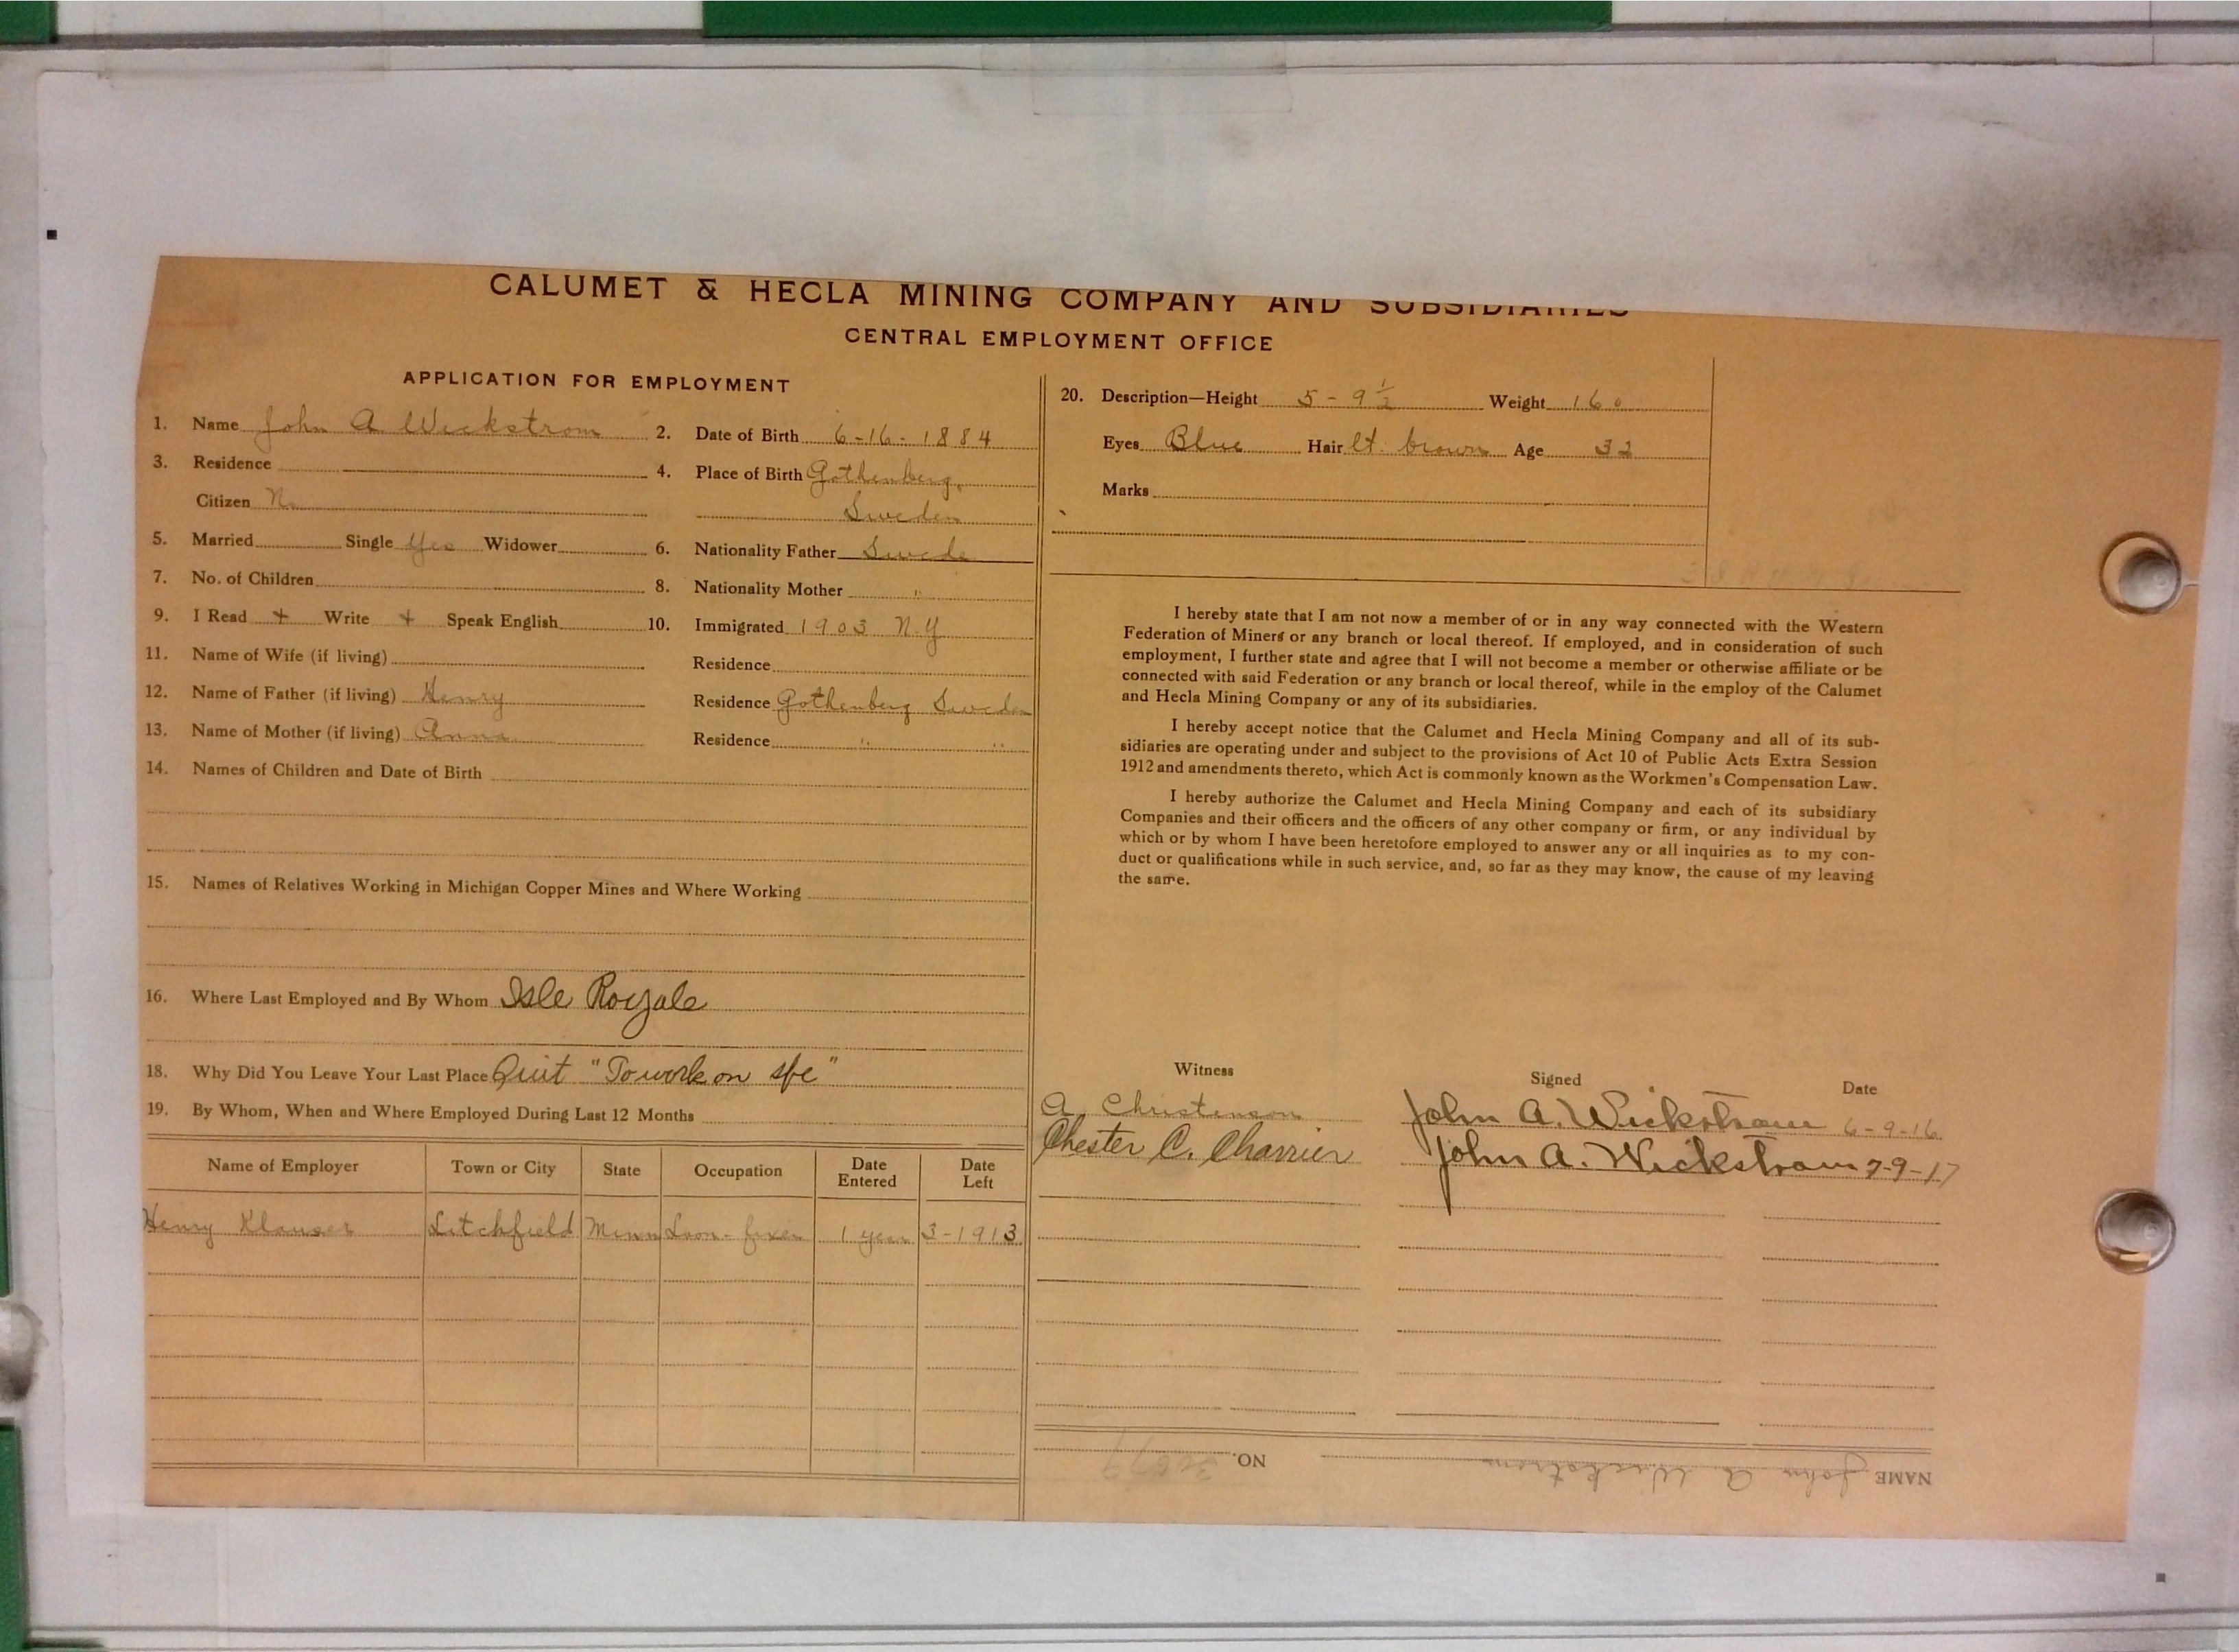 CALUMET & HECLA MINING COMPANY AND SUBSIDIARIES
CENTRAL EMPLOYMENT OFFICE
APPLICATION FOR EMPLOYMENT
1. Name John A Wickstrom 2. Date of Birth 6-16-1884
3. Residence 4. Place of Birth Gothenberg,
Citizen No Sweden
5. Married Single Yes Widower 6. Nationality Father Swede
7. No. of Children 8. Nationality Mother "
9. I Read + Write + Speak English 10. Immigrated 1903 N.Y
11. Name of Wife (if living) Residence
12. Name of Father (if living) Henry Residence Gothenberg Sweden
13. Name of Mother (if living) Anna Residence " "
14. Names of Children and Date of Birth
15. Names of Relatives Working in Michigan Copper Mines and Where Working
16. Where Last Employed and By Whom Isle Royale
18. Why Did You Leave Your Last Place Quit "To work on sfe"
19. By Whom, When and Where Employed During Last 12 Months
Name of Employer Town or City State Occupation Date Entered Date Left
Henry Klauser Litchfield Minn Loon-fixer 1 year 3-1913
20. Description—Height 5-9½ Weight 160
Eyes Blue Hair lt. brown Age 32
Marks
I hereby state that I am not now a member of or in any way connected with the Western
Federation of Miners or any branch or local thereof. If employed, and in consideration of such
employment, I further state and agree that I will not become a member or otherwise affiliate or be
connected with said Federation or any branch or local thereof, while in the employ of the Calumet
and Hecla Mining Company or any of its subsidiaries.
I hereby accept notice that the Calumet and Hecla Mining Company and all of its sub-
sidiaries are operating under and subject to the provisions of Act 10 of Public Acts Extra Session
1912 and amendments thereto, which Act is commonly known as the Workmen's Compensation Law.
I hereby authorize the Calumet and Hecla Mining Company and each of its subsidiary
Companies and their officers and the officers of any other company or firm, or any individual by
which or by whom I have been heretofore employed to answer any or all inquiries as to my con-
duct or qualifications while in such service, and, so far as they may know, the cause of my leaving
the same.
Witness Signed Date
A. Christenson John A. Wickstrom 6-9-16
Chester C. Charrier John A. Wickstrom 7-9-17
NAME John A Wickstrom NO. 30679